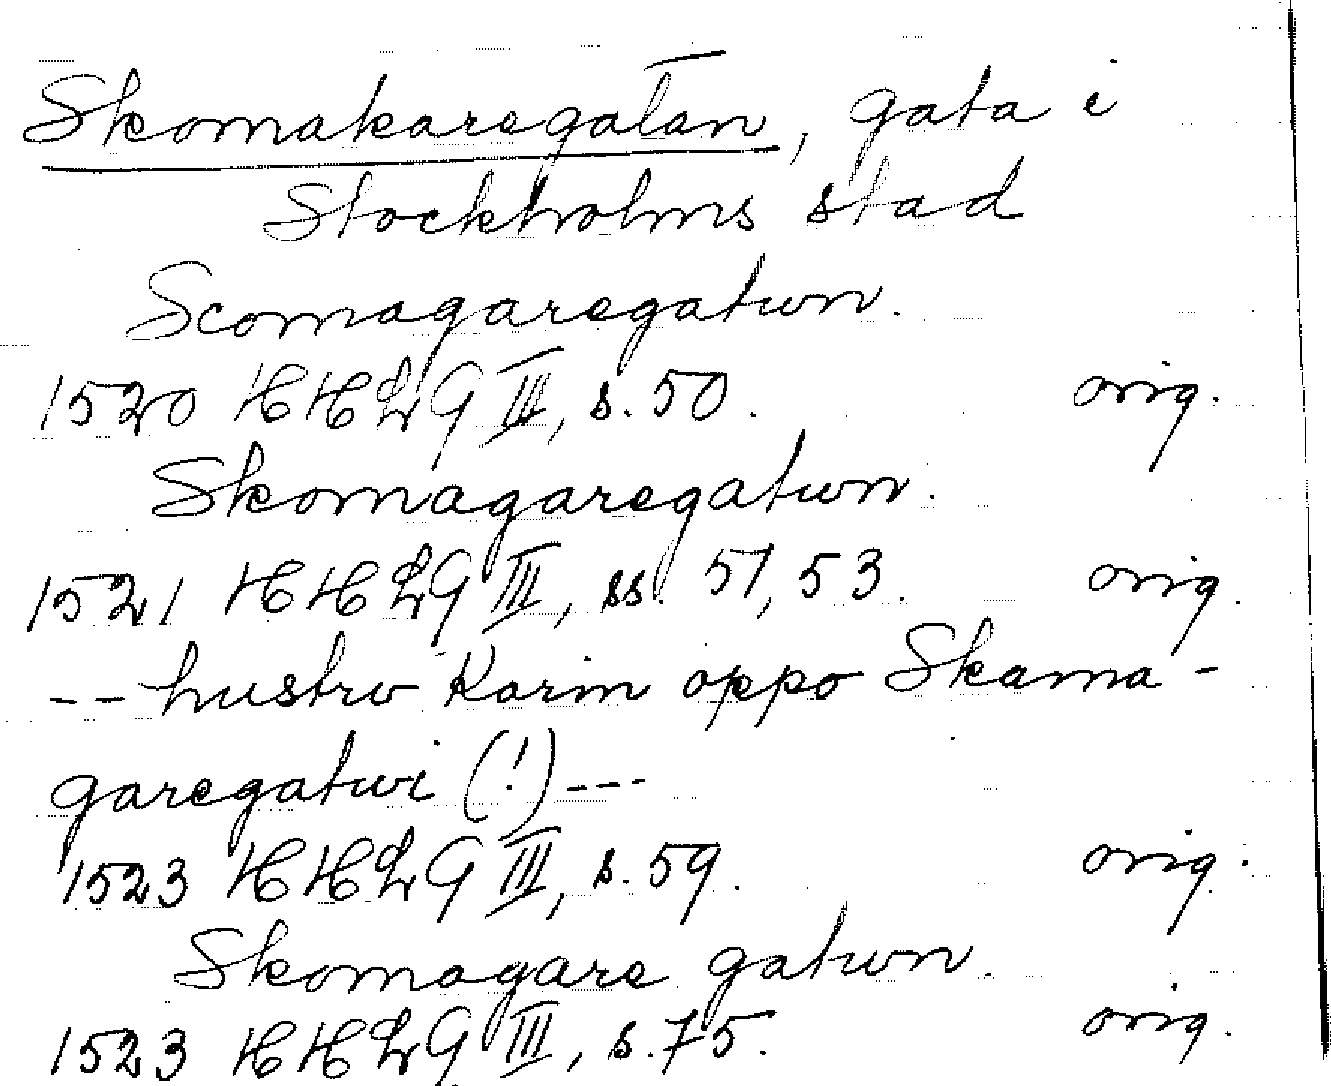 Skomakaregatan, gata i
Stockholms stad
Scomagaregatwn.
1520 HHLG III, s. 50. orig.
Skomagaregatwn.
1521 HHLG III, ss. 51, 53. orig.
-- hustrv Karin oppo Skama-
garegatwi (!) ---
1523 HHLG III, s. 59. orig.
Skomagare gatwn.
1523 HHLG III, s. 75. orig.